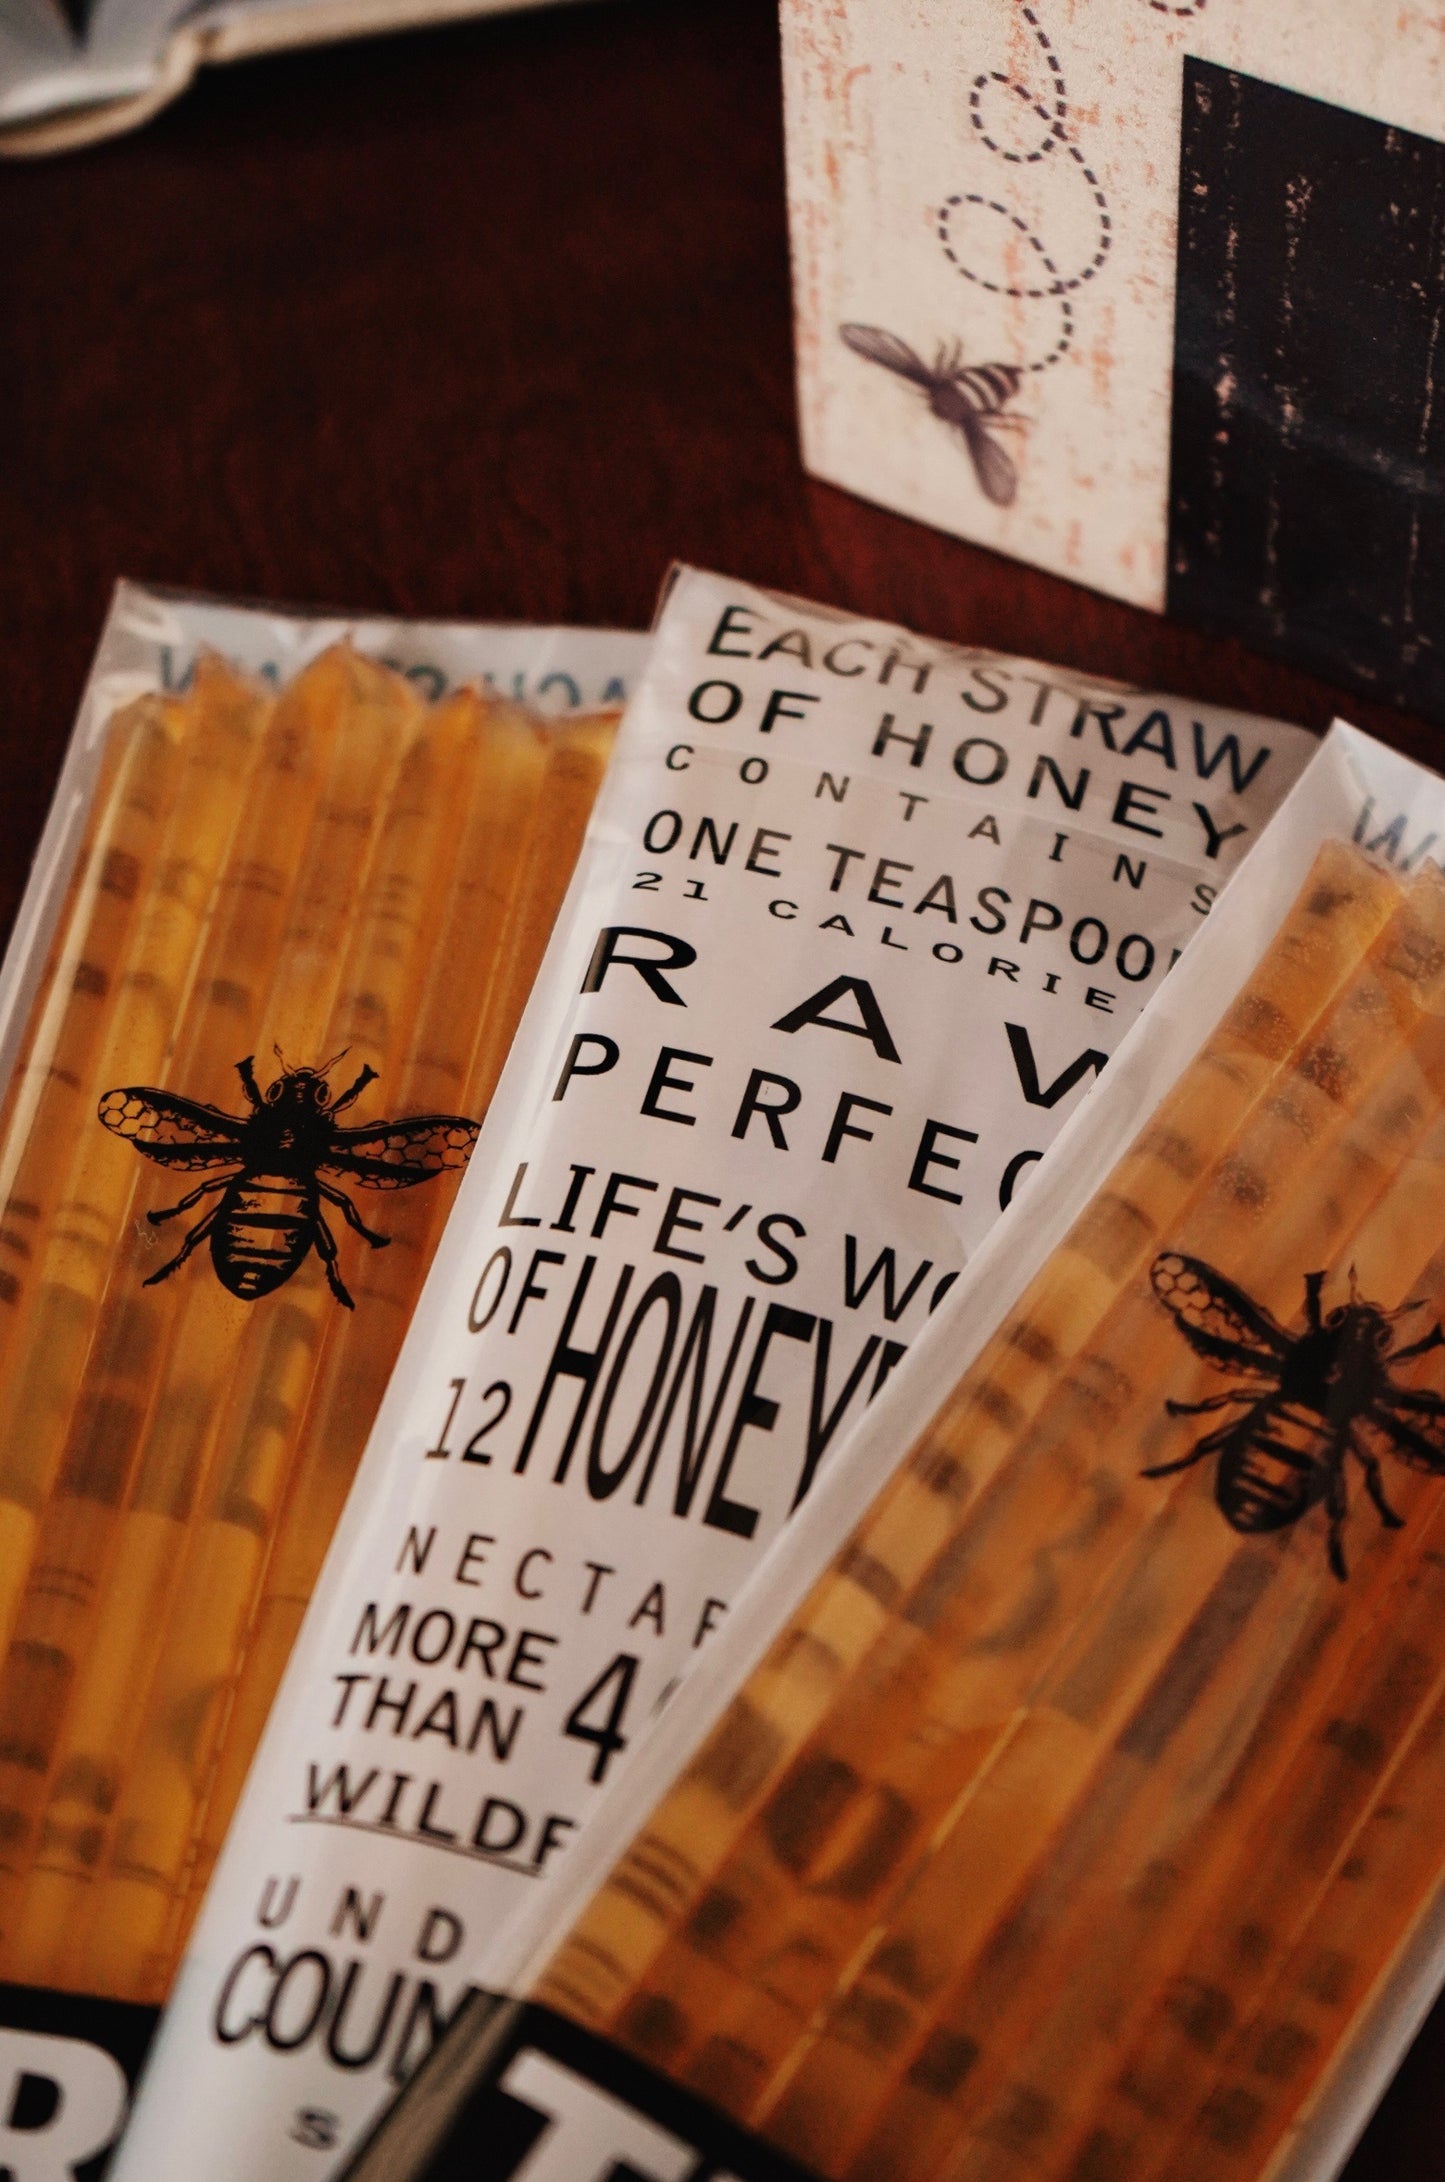 EACH STRAW
OF HONEY
CONTAINS
ONE TEASPOO
21 CALORIE
RAW
PERFEC
LIFE'S WO
OF HONEY
12
NECTAR
MORE
THAN 4
WILDF
UND
COUN
S
R
T